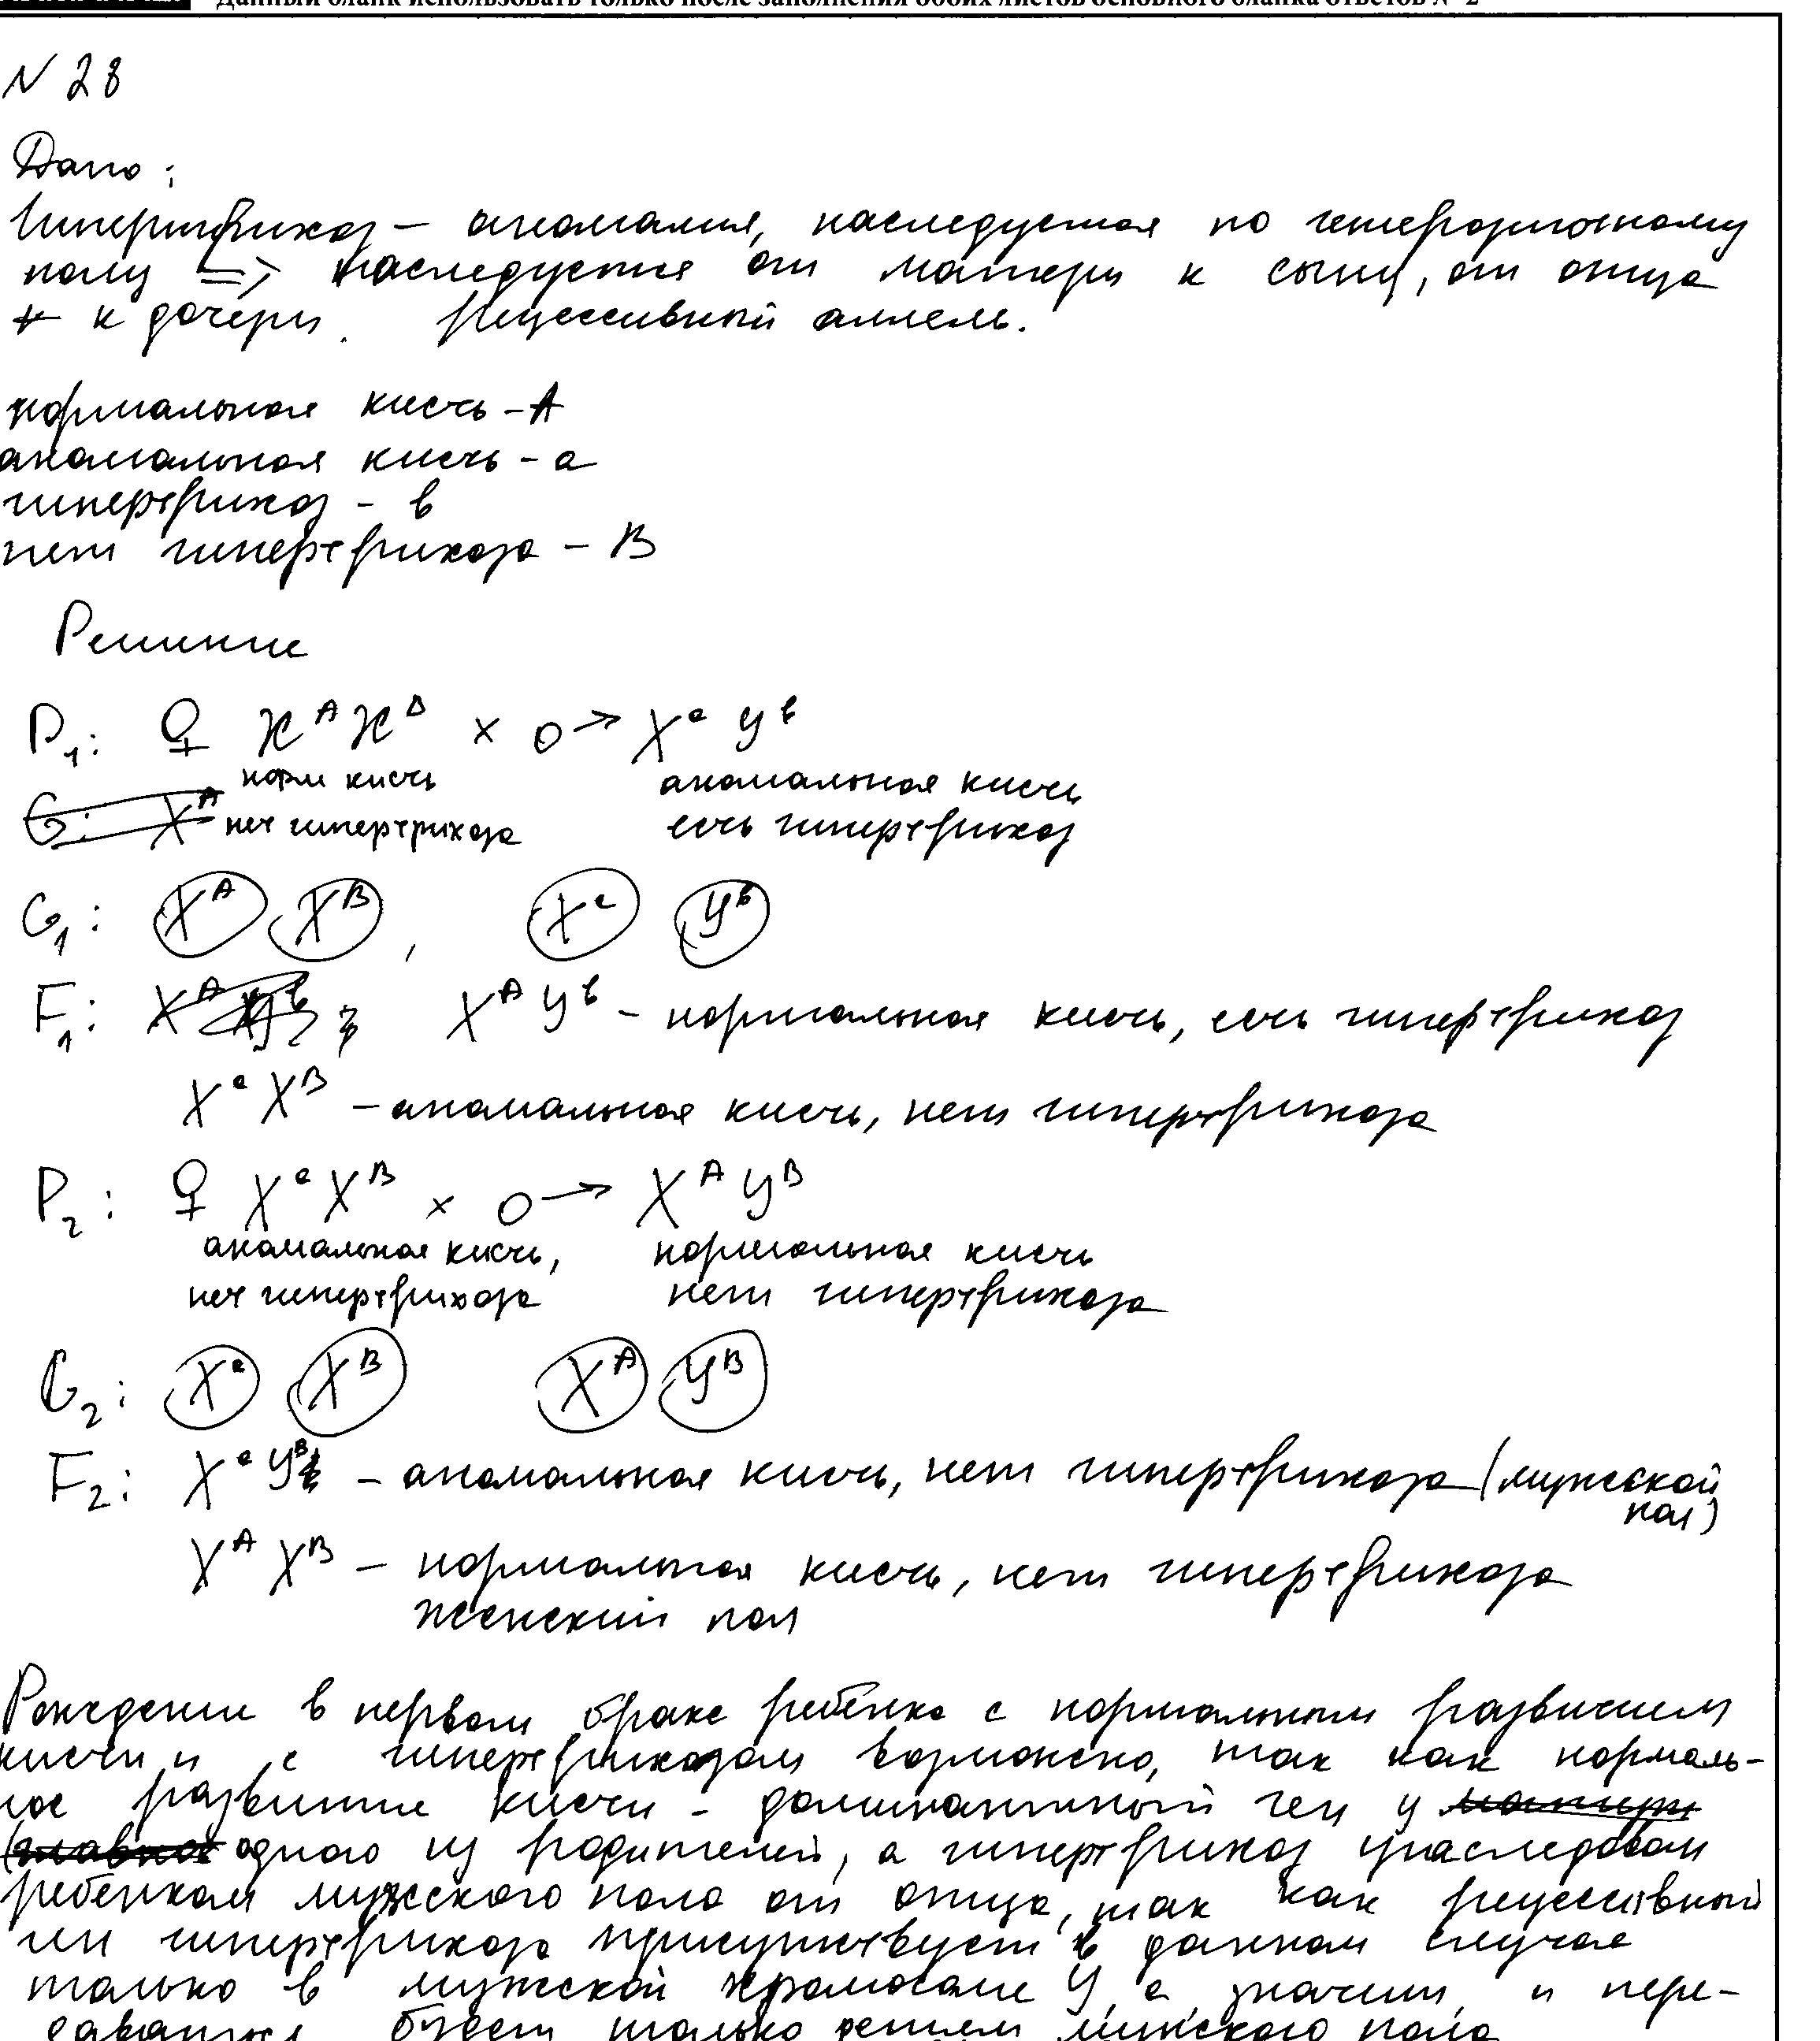 Данный бланк использовать только после заполнения обоих листов основного бланка ответов № 2
N 28
Дано:
Гипертрихоз – аномалия, наследуемая по гетерогаметному
полу => наследуется от матери к сыну, от отца
к дочери. Рецессивный аллель.
нормальная кисть - A
аномальная кисть - a
гипертрихоз - в
нет гипертрихоза - B
Решение
P₁: ♀ XᴬXᴮ x ♂ XᵃYᵇ
норм кисть аномальная кисть
нет гипертрихоза есть гипертрихоз
G₁: Xᴬ Xᴮ, Xᵃ Yᵇ
F₁: XᴬYᵇ - нормальная кисть, есть гипертрихоз
XᵃXᴮ - аномальная кисть, нет гипертрихоза
P₂: ♀ XᵃXᴮ x ♂ XᴬYᴮ
аномальная кисть, нормальная кисть
нет гипертрихоза нет гипертрихоза
G₂: Xᵃ Xᴮ Xᴬ Yᴮ
F₂: XᵃYᴮ - аномальная кисть, нет гипертрихоза (мужской
пол)
XᴬXᴮ - нормальная кисть, нет гипертрихоза
женский пол
Рождение в первом браке ребёнка с нормальным развитием
кисти и с гипертрихозом возможно, так как нормаль-
ное развитие кисти - доминантный ген у
одного из родителей, а гипертрихоз унаследован
ребенком мужского пола от отца, так как рецессивный
ген гипертрихоза присутствует в данном случае
только в мужской хромосоме Y, а значит, и пере-
даваться будет только детям мужского пола